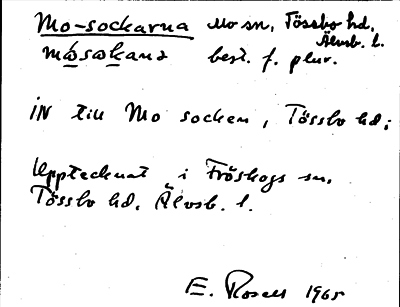 Mo-sockarna Mo sn, Tössbo hd,
Älvsb. l.
best. f. plur.
IN till Mo socken, Tössbo hd;
Upptecknat i Fröskogs sn.
Tössbo hd. Älvsb. l.
E. Rosell 1965